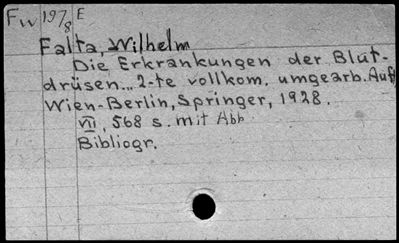 Fw 197/8 E
Falta, Wilhelm
Die Erkrankungen der Blut-
drüsen... 2-te vollkom. umgearb. Aufl
Wien-Berlin, Springer, 1928.
VII, 568 s. mit Abb.
Bibliogr.